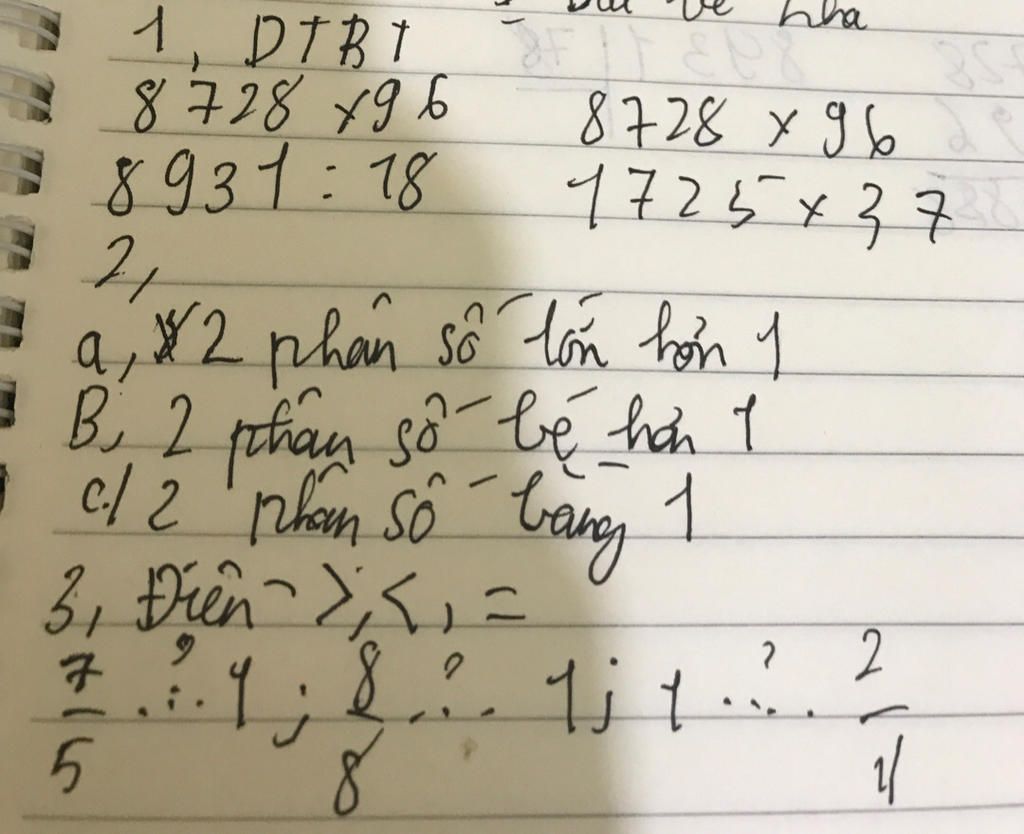 Bài về nhà
1, DTBT
8728 x 96 8728 x 96
8931 : 18 1725 x 37
2,
a, 2 phân số lớn hơn 1
B, 2 phân số bé hơn 1
c./ 2 phân số bằng 1
3, Điền >, <, =
7/5 ..?.. 1 ; 8/8 ..?.. 1 ; 1 ..?.. 2/4